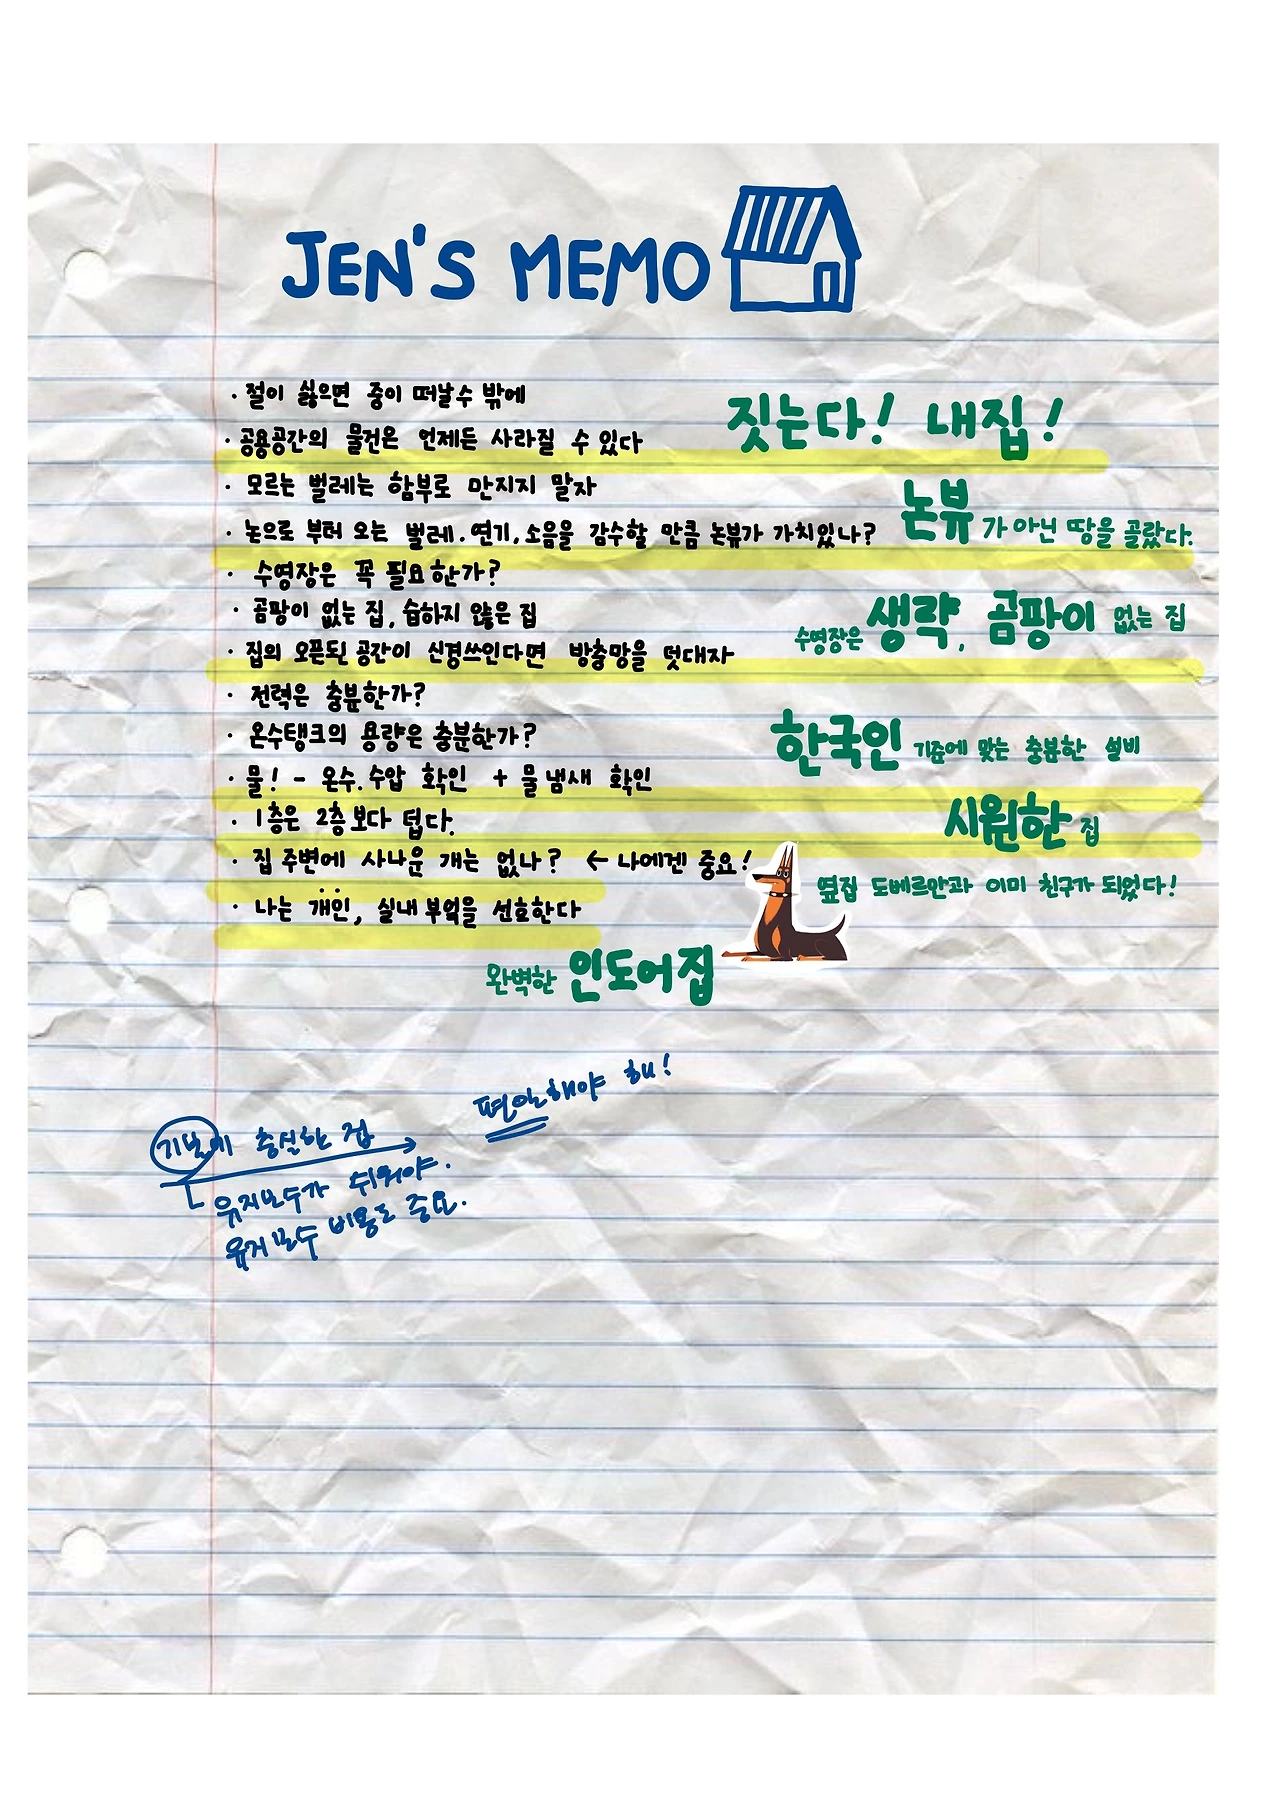 JEN'S MEMO
· 절이 싫으면 중이 떠날수 밖에
짓는다! 내집!
· 공용공간의 물건은 언제든 사라질 수 있다
· 모르는 벌레는 함부로 만지지 말자
· 논으로 부터 오는 벌레. 연기, 소음을 감수할 만큼 논뷰가 가치있나?
논뷰가 아닌 땅을 골랐다.
· 수영장은 꼭 필요한가?
· 곰팡이 없는 집, 습하지 않은 집
수영장은 생략, 곰팡이 없는 집
· 집의 오픈된 공간이 신경쓰인다면 방충망을 덧대자
· 전력은 충분한가?
· 온수탱크의 용량은 충분한가?
한국인 기준에 맞는 충분한 설비
· 물! - 온수. 수압 확인 + 물 냄새 확인
· 1층은 2층보다 덥다.
시원한 집
· 집 주변에 사나운 개는 없나? ← 나에겐 중요!
옆집 도베르만과 이미 친구가 되었다!
· 나는 개인, 실내 부엌을 선호한다
완벽한 인도어집
편안해야 해!
기본에 충실한 집
유지보수가 쉬워야.
유지보수 비용도 중요.